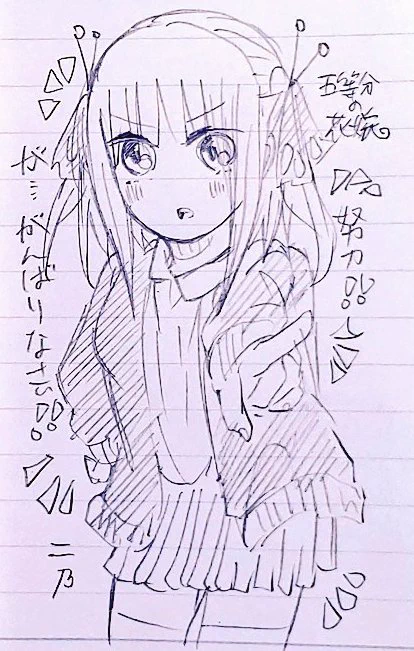 五等分
の
花嫁
努力!!
が…がんばりなさい!!
二乃